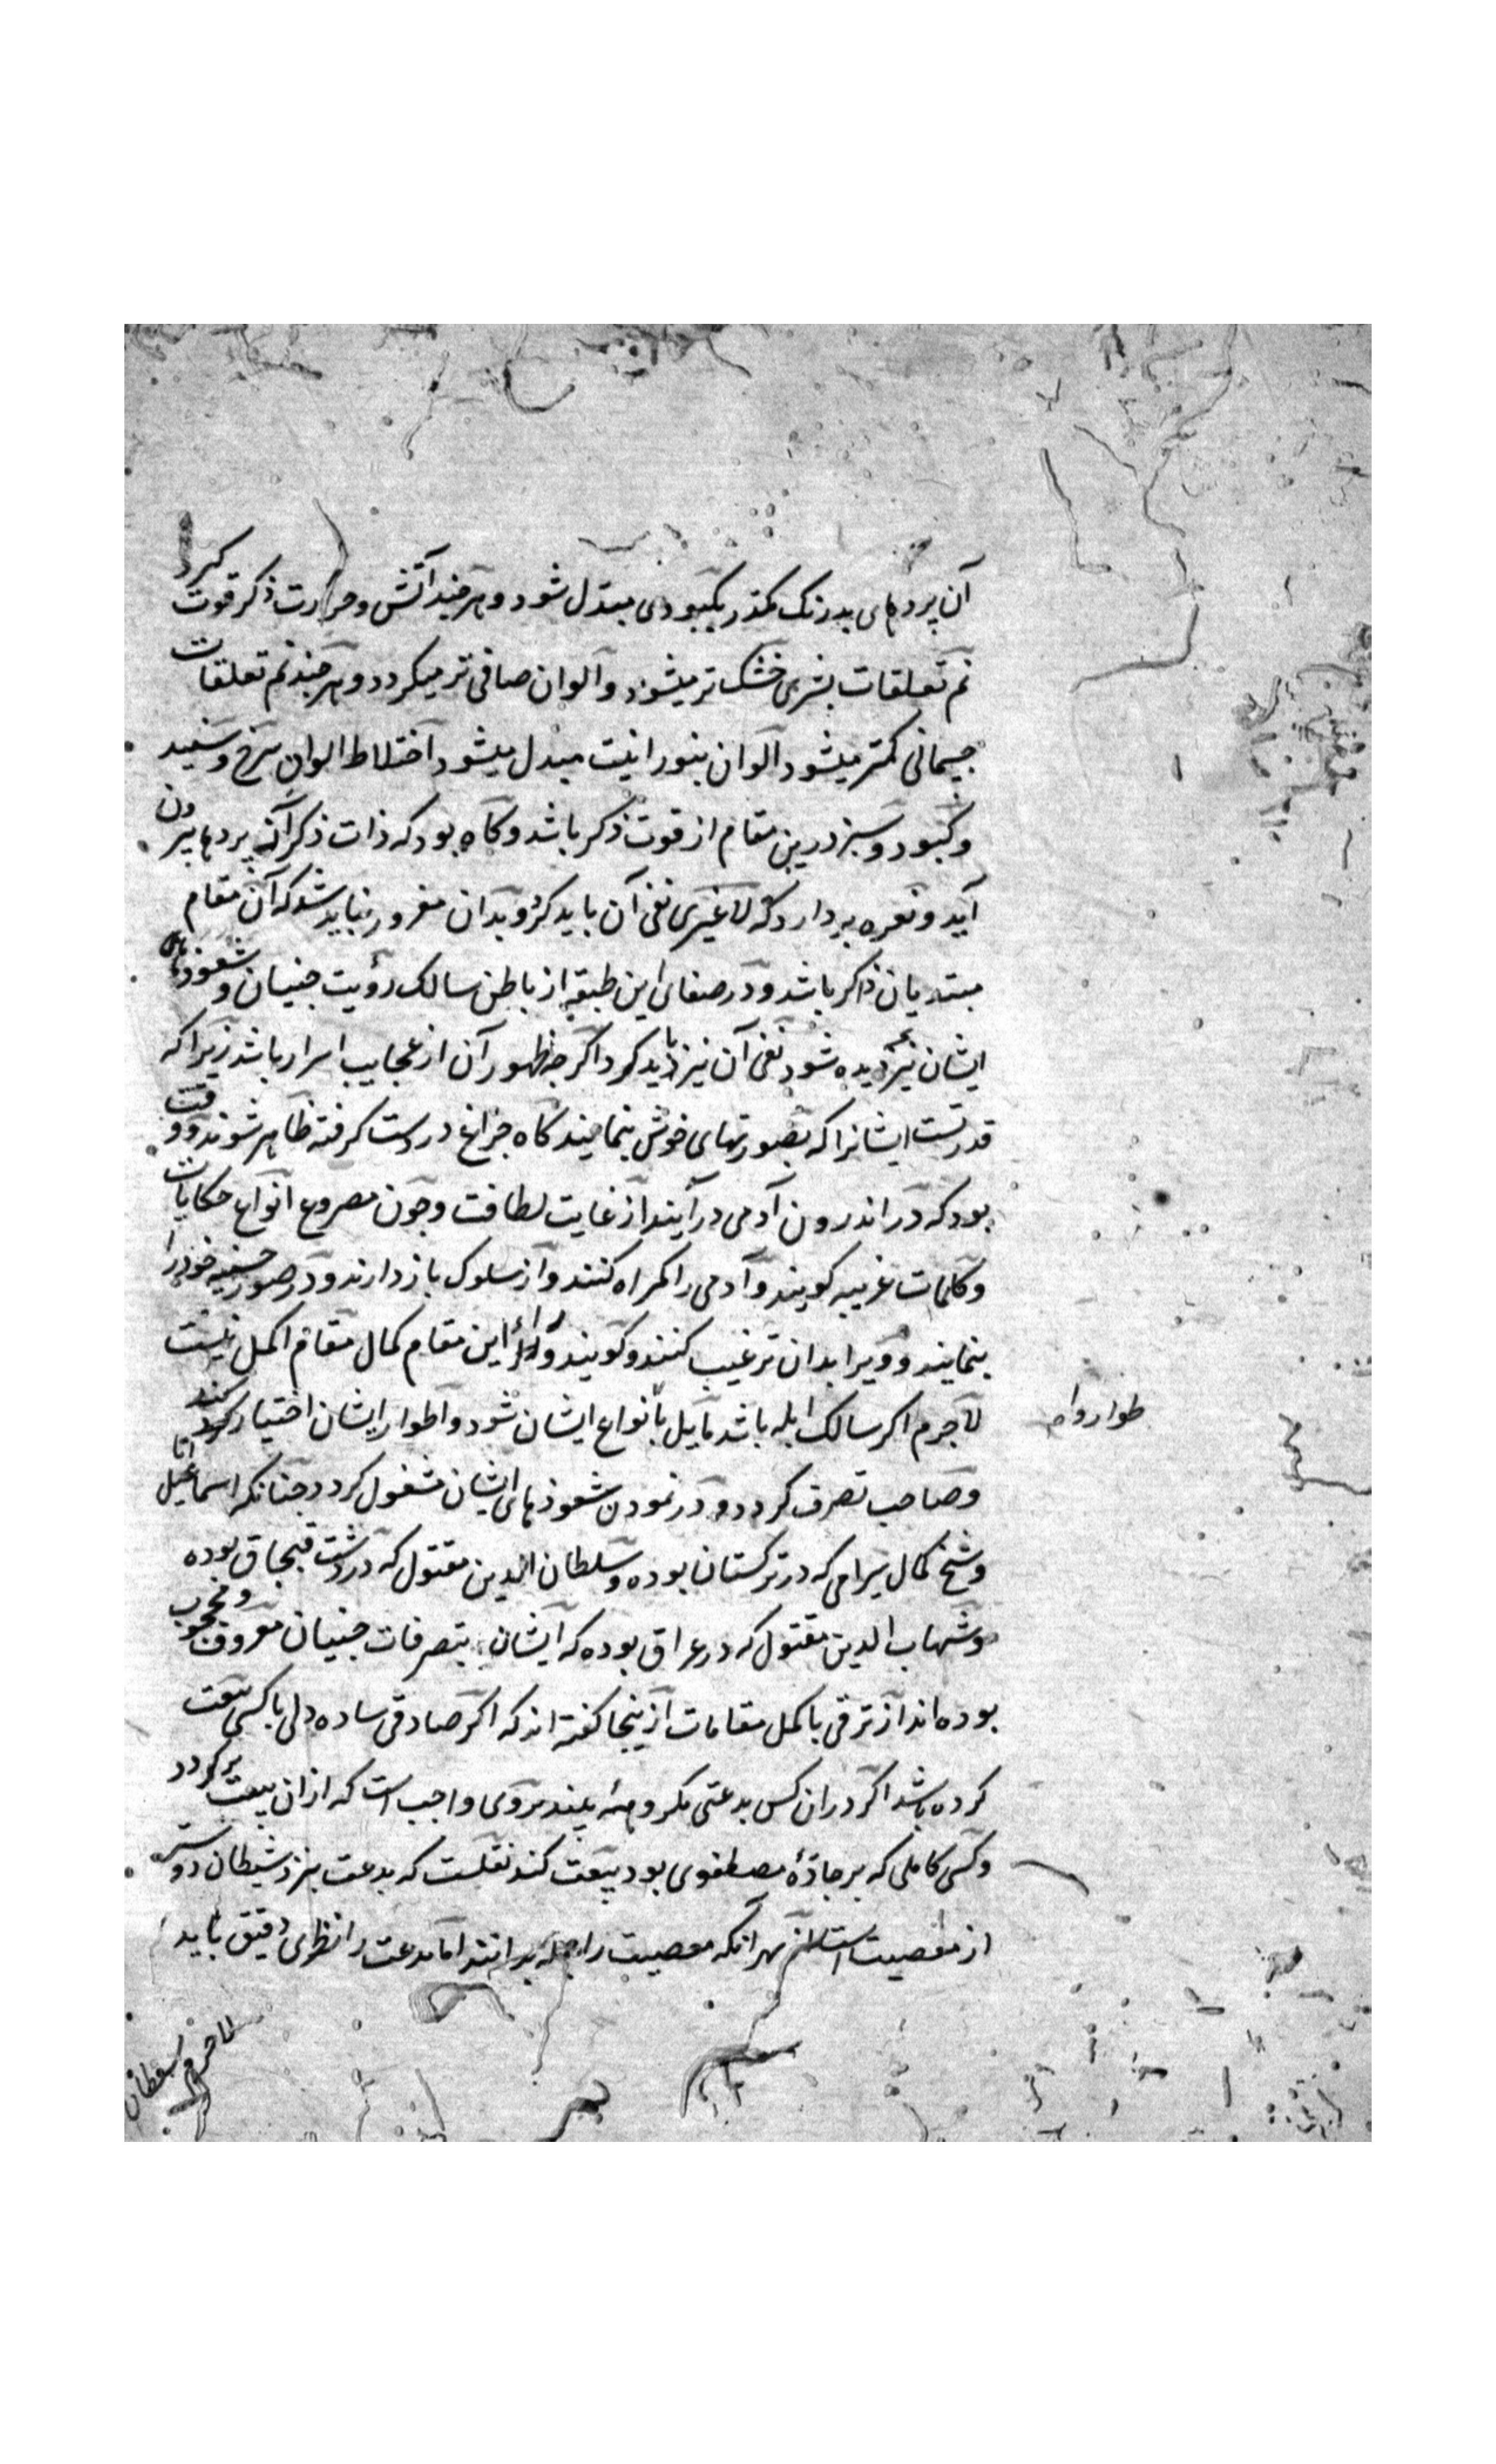 آن پردهای بدرنک مکدر بکبودی مبتدل شود و هرچند آتش و حرارت ذکر قوت کیرد
نم تعلقات بشری خشک تر میشود و الوان صافی تر میکردد و هرچند نم تعلقات
جسمانی کمتر میشود الوان بنورانیت مبدل میشود اختلاط الوان سرخ و سفید
و کبود و سبز درین مقام از قوت ذکر باشد و کاه بود که ذات ذکر آن پردها بیرون
آید و نعره بردارد که لا غیری نفی آن باید کرد و بدان مغرور نباید شد که آن مقام
مبتدیان ذاکر باشد و در صفای این طبقه از باطن سالک رؤیت جنیان و شعوذهای
ایشان نیز دیده شود نفی آن نیز باید کرد اکرچه ظهور آن از عجایب اسرار باشد زیرا که
قدرتست ایشانرا که بصورتهای خوش بنمایند کاه چراغ در دست کرفته ظاهر شوند و وقت
بود که در اندرون آدمی درآیند از غایت لطافت و چون مصروع انواع حکایات
و کلمات غریبه کویند و آدمی را کمراه کنند و از سلوک بازدارند و در صور حسنه خود را
بنمایند و ویرا بدان ترغیب کنند و کویند ورای این مقام کمال مقام اکمل نیست
لاجرم اکر سالک ابله باشد مایل بانواع ایشان شود و اطوار ایشان اختیار کند
طوار وام
و صاحب تصرف کردد و در نمودن شعوذهای ایشان مشغول کردد چنانکه اسماعیل اتا
و شیخ کمال سیرامی که در ترکستان بوده و سلطان الدین مقتول که در دشت قبجاق بوده
و شهاب الدین مقتول که در عراق بوده که ایشان بتصرفات جنیان معروف و محجوب
بوده اند از ترقی باکمل مقامات ازینجا کفته اند که اکر صادقی ساده دلی با کسی بیعت
کرده باشد اکر دران کس بدعتی مکروهه بیند بر وی واجب است که ازان بیعت برکردد
و کسی کاملی که بر جادۀ مصطفوی بود بیعت کند نقلست که بدعت بنزد شیطان دوستر
از معصیت است از بهر آنکه معصیت را بدانند اما بدعت را نظری دقیق باید
لاجرم شیطان